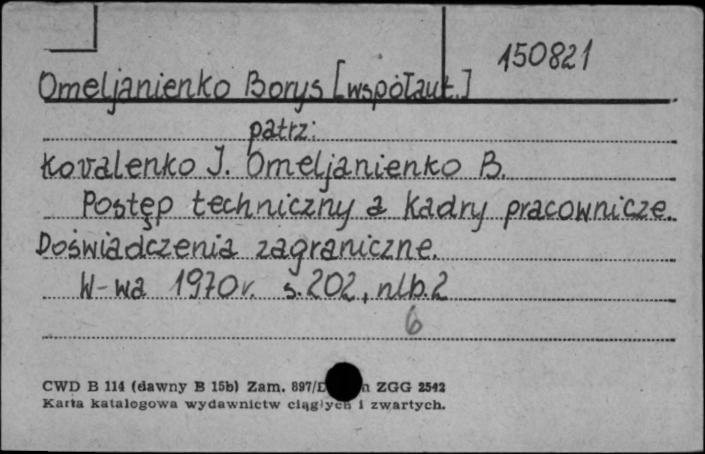 150821
Omeljanienko Borys [współaut.]
patrz:
Kovalenko J. Omeljanienko B.
Postęp techniczny a kadry pracownicze.
Doświadczenia zagraniczne.
W-wa 1970r. s.202, nlb.2
6
CWD B 114 (dawny B 15b) Zam. 897/D ZGG 2542
Karta katalogowa wydawnictw ciągłych i zwartych.